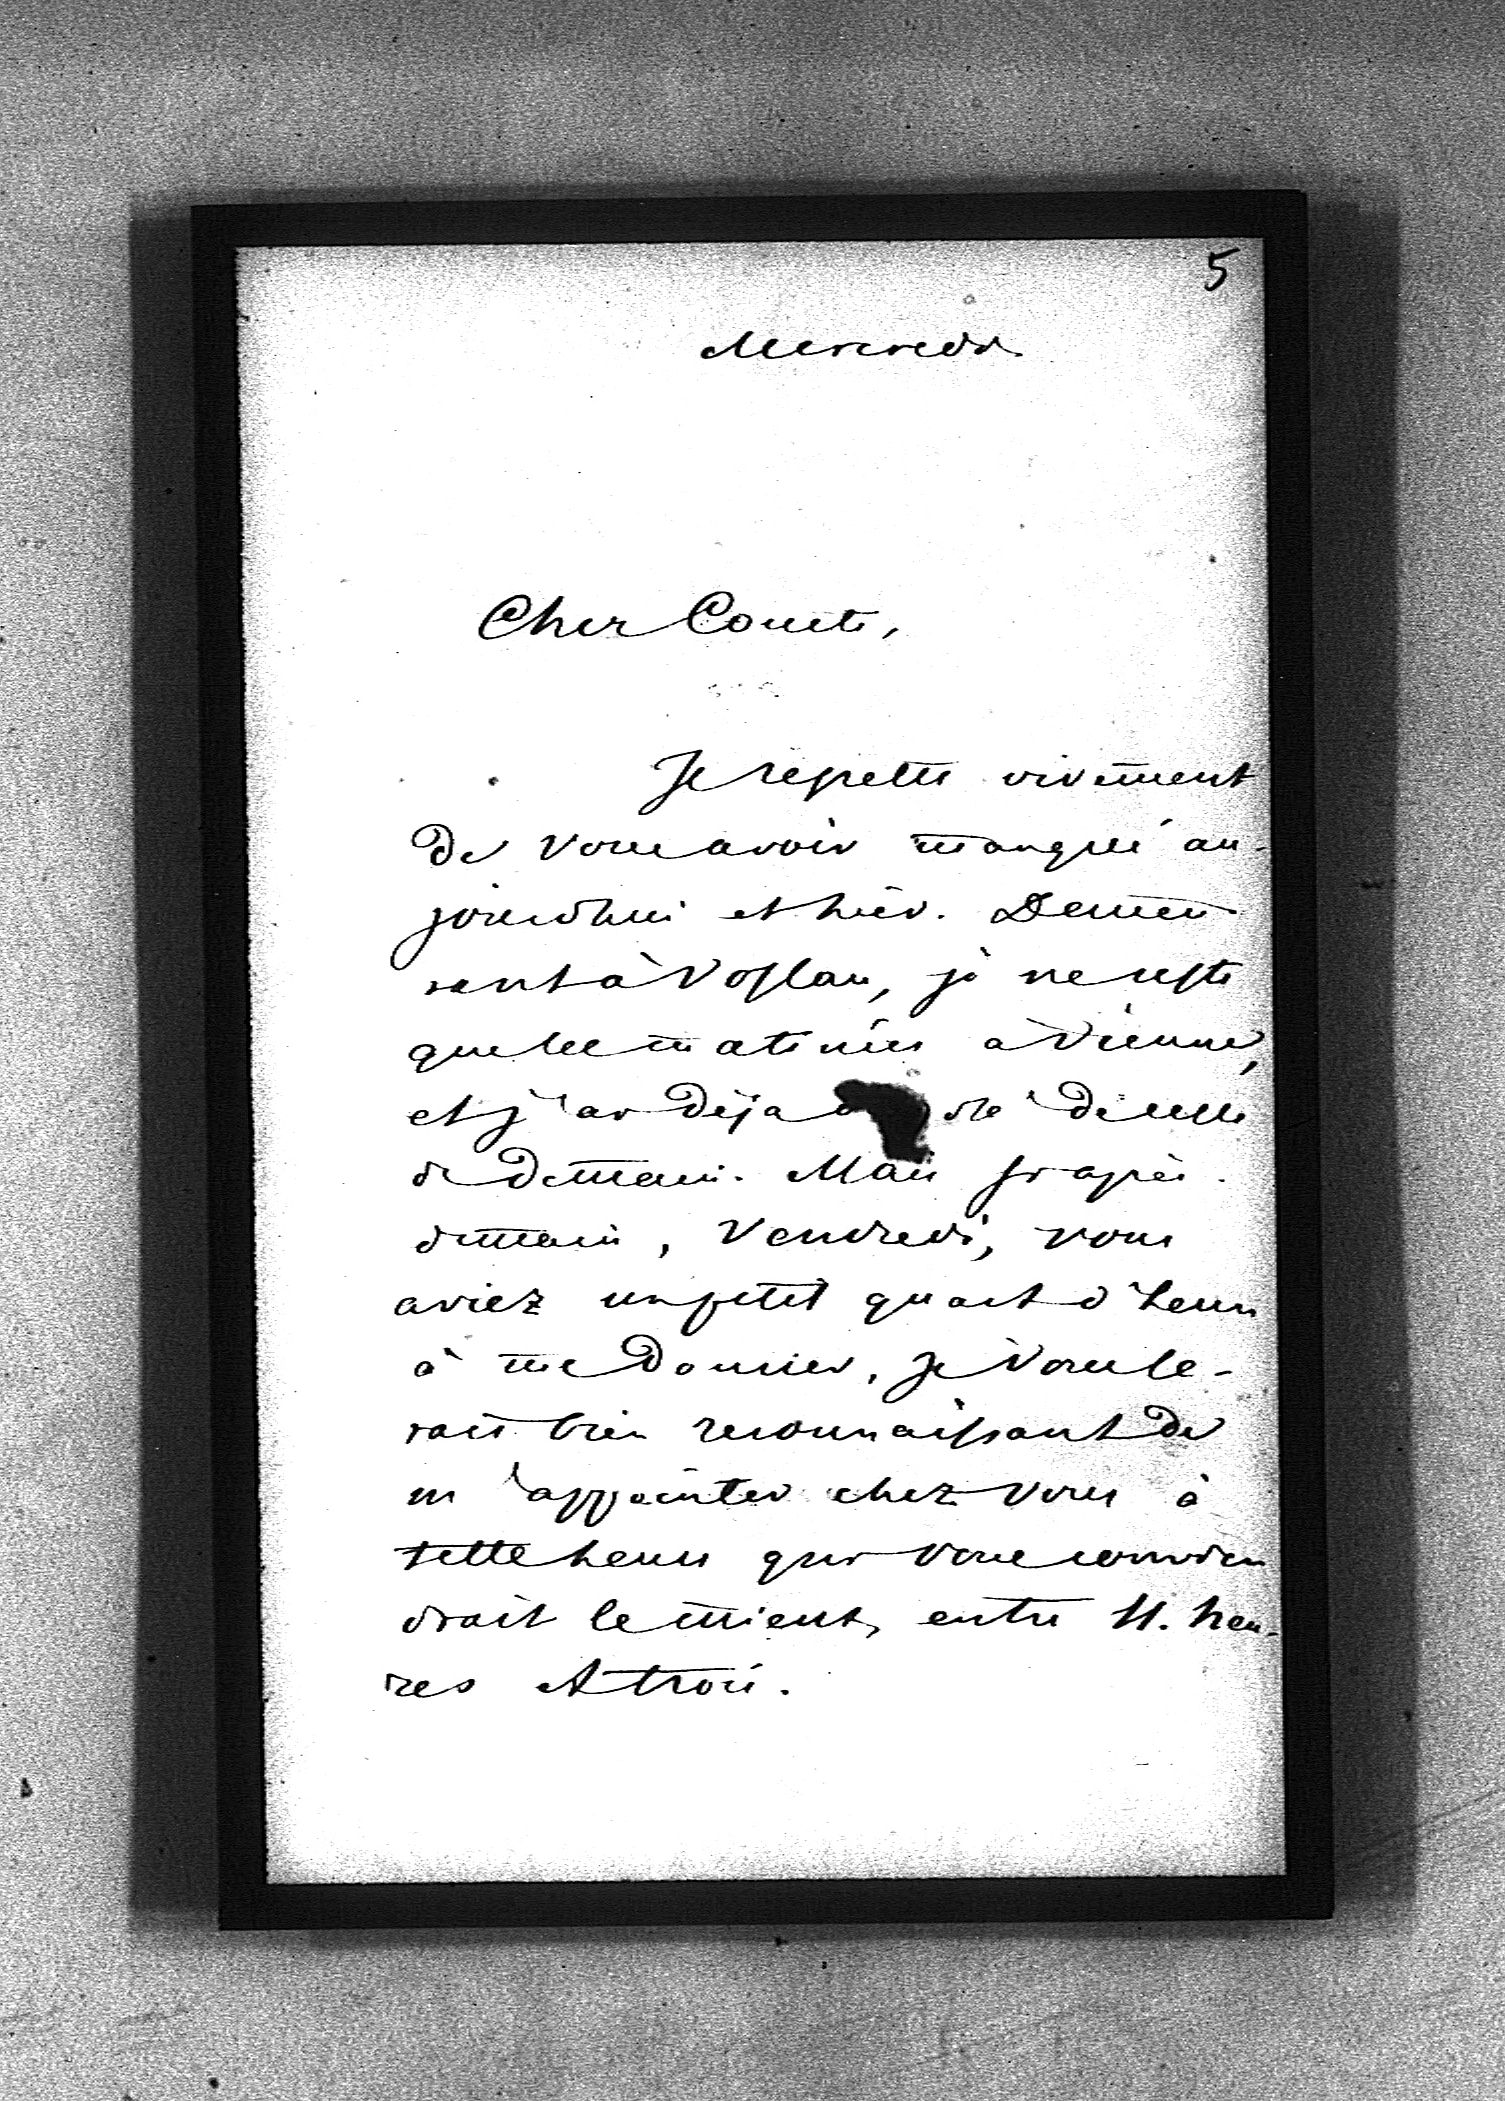 5
Mercredi
Cher Comte,
Je regrette vivement
de vous avoir manqué au-
jourdhui et hièr. Demeu
rant à Voslau, je ne reste
que les matinées à Vienne,
et j'ai déja dis de celle
de demain. Mais si après-
demain, Vendredi, vous
aviez un petit quart d'heure
à me donner, je vous se-
rais bien reconnaissant de
m'appointer chez vous à
telle heure qui vous convien
drait le mieux, entre 11. heu-
res et trois.